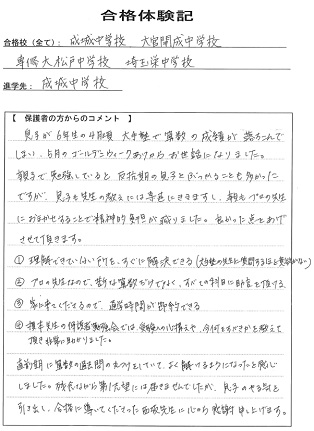 合格体験記
合格校(全て): 成城中学校 大宮開成中学校
専修大松戸中学校 埼玉栄中学校
進学先: 成城中学校
【 保護者の方からのコメント 】
息子が6年生の4月頃、大手塾で算数の成績が落ちこんで
しまい、5月のゴールデンウィークあけからお世話になりました。
親子で勉強していると、反抗期の息子とぶつかることも多かった
ですが、息子も先生の教えには素直にききますし、親もプロの先生
におまかせすることで精神的負担が減りました。良かった点をあげ
させて頂きます。
① 理解できていない所を、すぐに解決できる
② プロの先生なので、断な算数だけでなく、すべての科目に助言を頂ける。
③ 家に来てくださるので、通塾時間が節約できる
④ 先生の保護者勉強会では、受験の心構えや、今何をすべきかを教えて
頂き非常に助かりました。
直前期に算数の過去問の
しました。残念ながら第1志望には届きませんでしたが、息子のやる気を
引き出し、合格に導いてくださった西坂先生に心から感謝申し上げます。